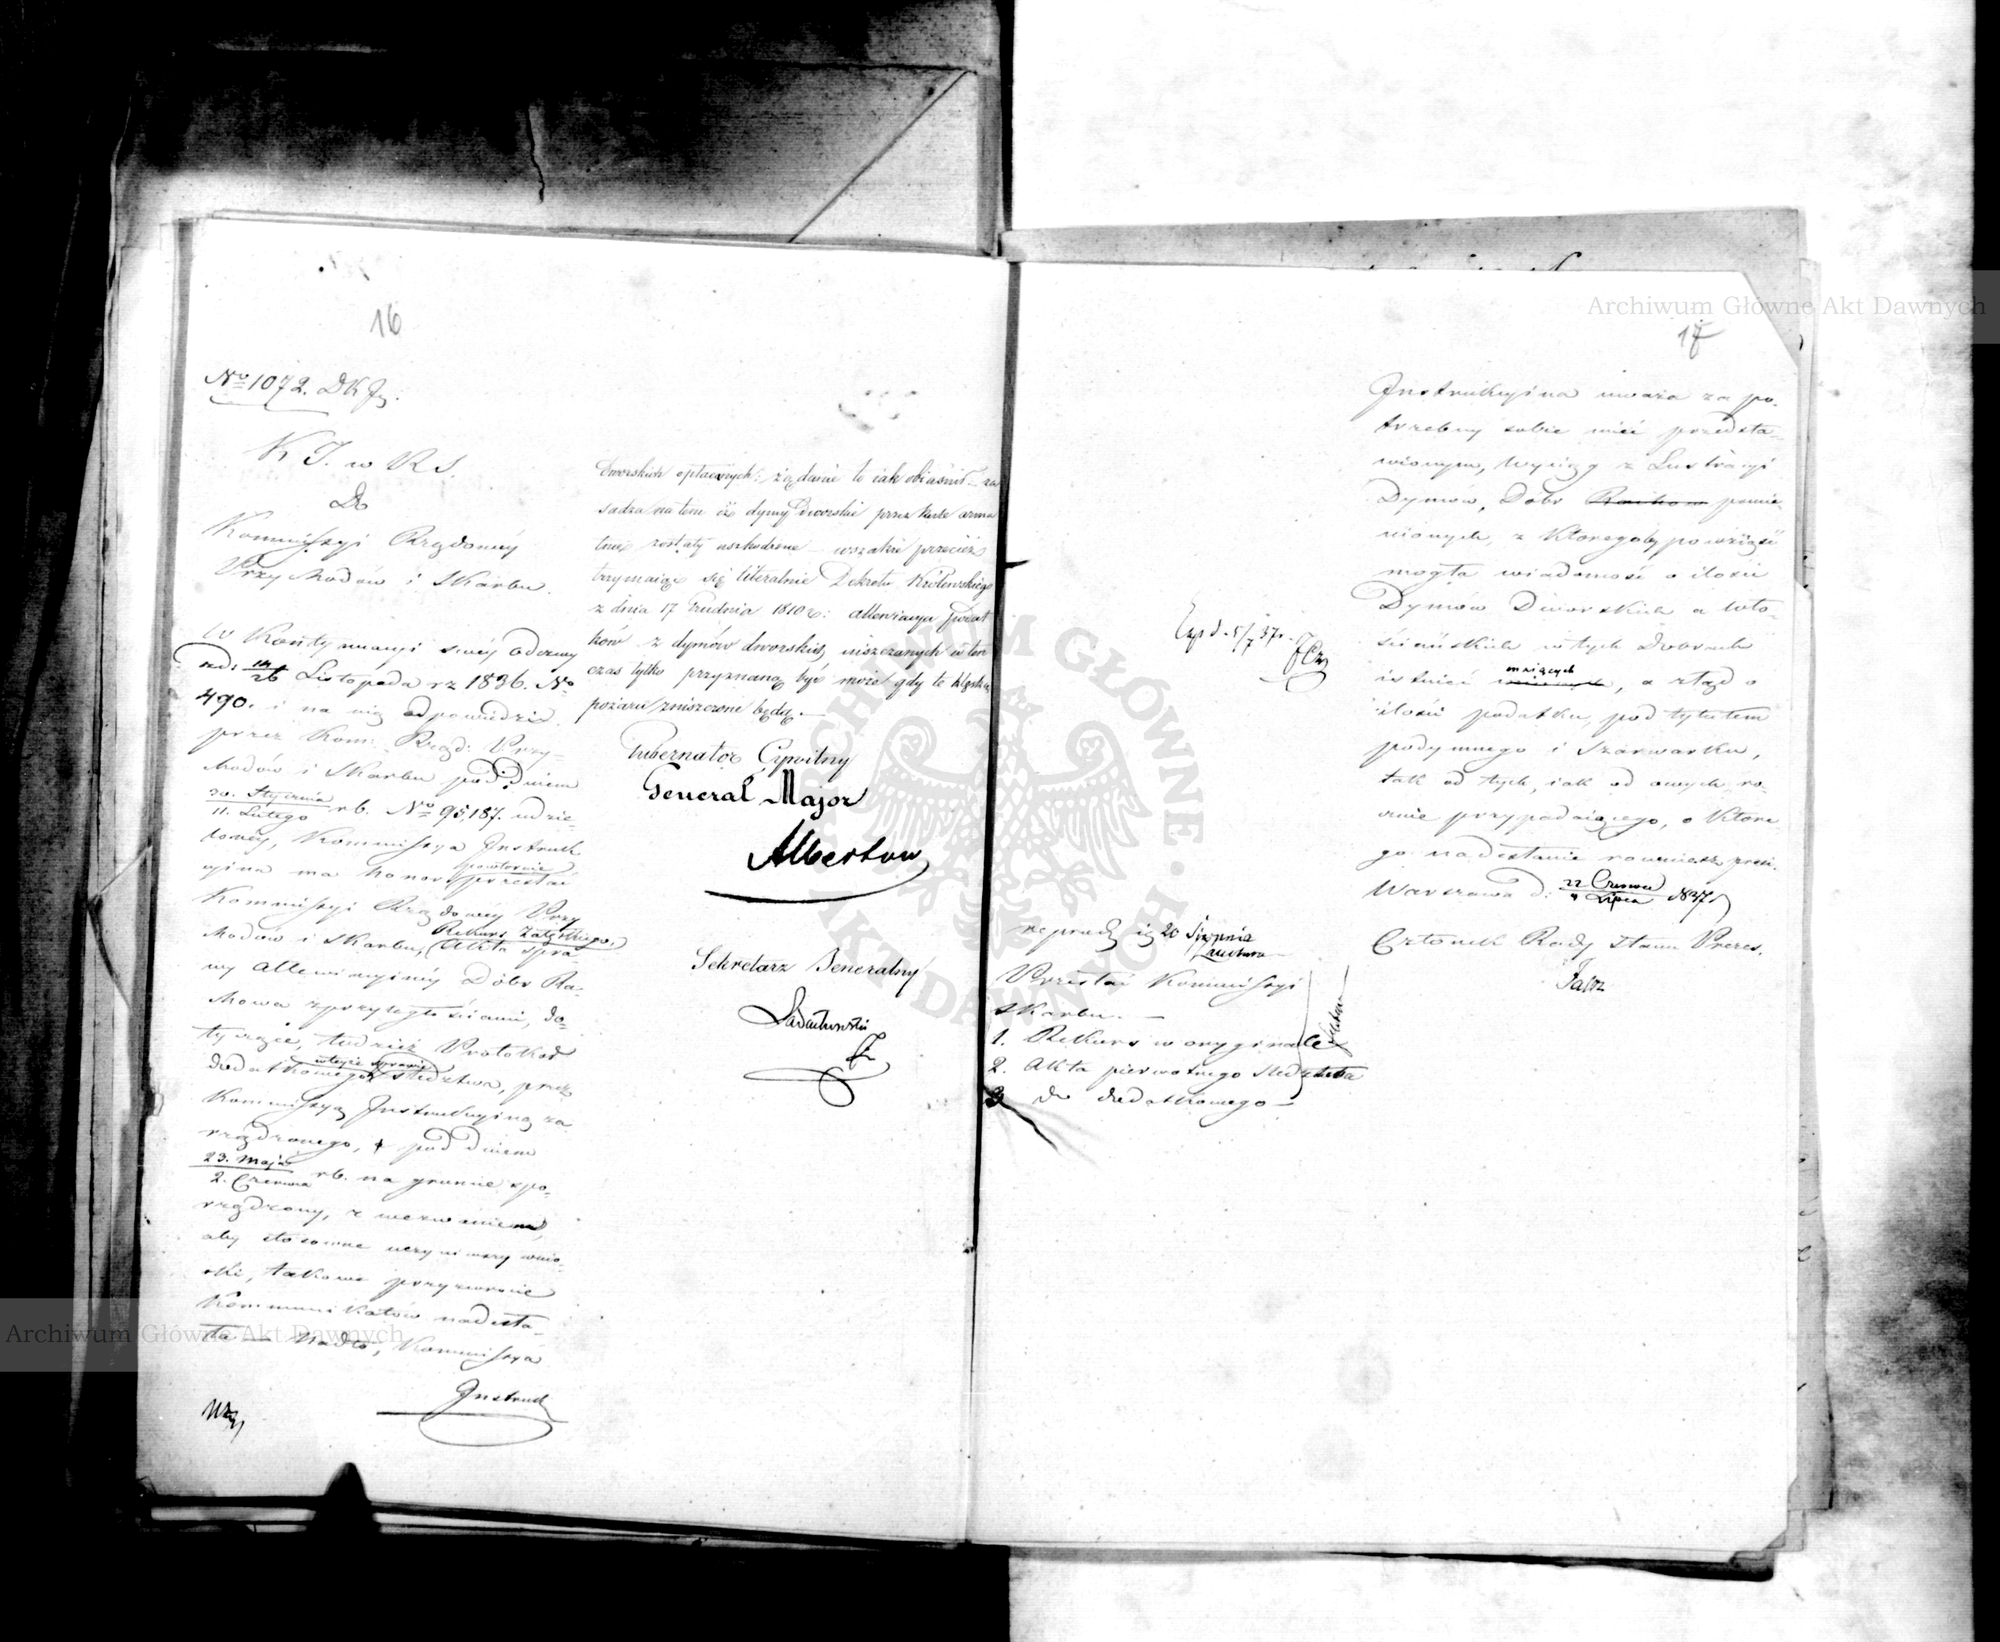 16
No 1072. DKJ.
K J. w K S.
Do
Kommissyi Rządowéy
Przychodów i Skarbu.
W Kontynuacyi swéy odezwy
z d. 14/26 Listopada rz 1836. No
490. i na nią odpowiedzi
przez Kom: Rząd: Przy-
chodów i Skarbu pod dniem
30. Stycznia / 11. Lutego rb. No 95,187. udzie-
loney, Kommissya Instruk
cyina ma honor powtórnie przesłać
Kommissyi Rządowéy Przy
chodów i Skarbu, Rekurs Załęskiego, Akta spra-
wy allewiacyinéy Dóbr Ra-
chowa z przyległościami, do-
tyczące, tudzież Protokół
dodatkowego w teyże sprawie śledztwa, przez
Kommissyą Instrukcyiną za
rządzonego, pod dniem
23. Maja / 2. Czerwca rb. na gruncie spo-
rządzony, z wezwaniem,
aby stosowne uczyniwszy wnio-
ski, takowe przy zwrocie
Kommunikatów nadesła-
ła — Nadto, Kommissya
Instruk
dworskich opłaconych: żądanie to jak obiaśnił — za
sadza na tem iż dymy Dworskie przez kule arma
tnie zostały uszkodzone — wszakże przecież
trzymaiąc się literalnie Dekretu Królewskiego
z dnia 17 Grudnia 1810 r: allewiacya podat
ków z dymów dworskich, niszczonych w ten
czas tylko przyznaną być może gdy te klęską
pożaru zniszczone będą. —
Gubernator Cywilny
Generał Major
Albertow
Sekretarz Jeneralny
17
Instrukcyina uważa za po-
trzebny sobie mieć przedsta-
wionym, wyciąg z Lustracyi
Dymów, Dóbr Rachow pomie-
nionych, z którego by powziąść
mogła wiadomość o ilości
Dymów Dworskich a wło-
ściańskich w tych Dobrach
istnieć maiących, a ztąd o
ilości podatku, pod tytułem
podymnego i Szarwarku,
tak od tych, iak od owych ro-
cznie przypadaiącego, o które
go nadesłanie rownież prosi.
Warszawa d: 22 Czerwca / 4 Lipca 1837.
Członek Rady Stanu Prezes.
Exp d. 5/7 37 r.
20 Sierpnia
Przesłać Kommissyi
Skarbu. —
1. Rekurs w oryginale
2. Akta pierwotnego śledztwa
3 do dodatkowego —
Archiwum Główne Akt Dawnych
Archiwum Główne Akt Dawnych
ARCHIWUM GŁÓWNE AKT DAWNYCH